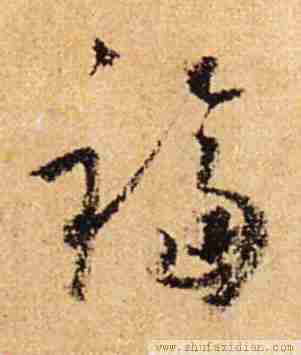 福
www.shufazidian.com